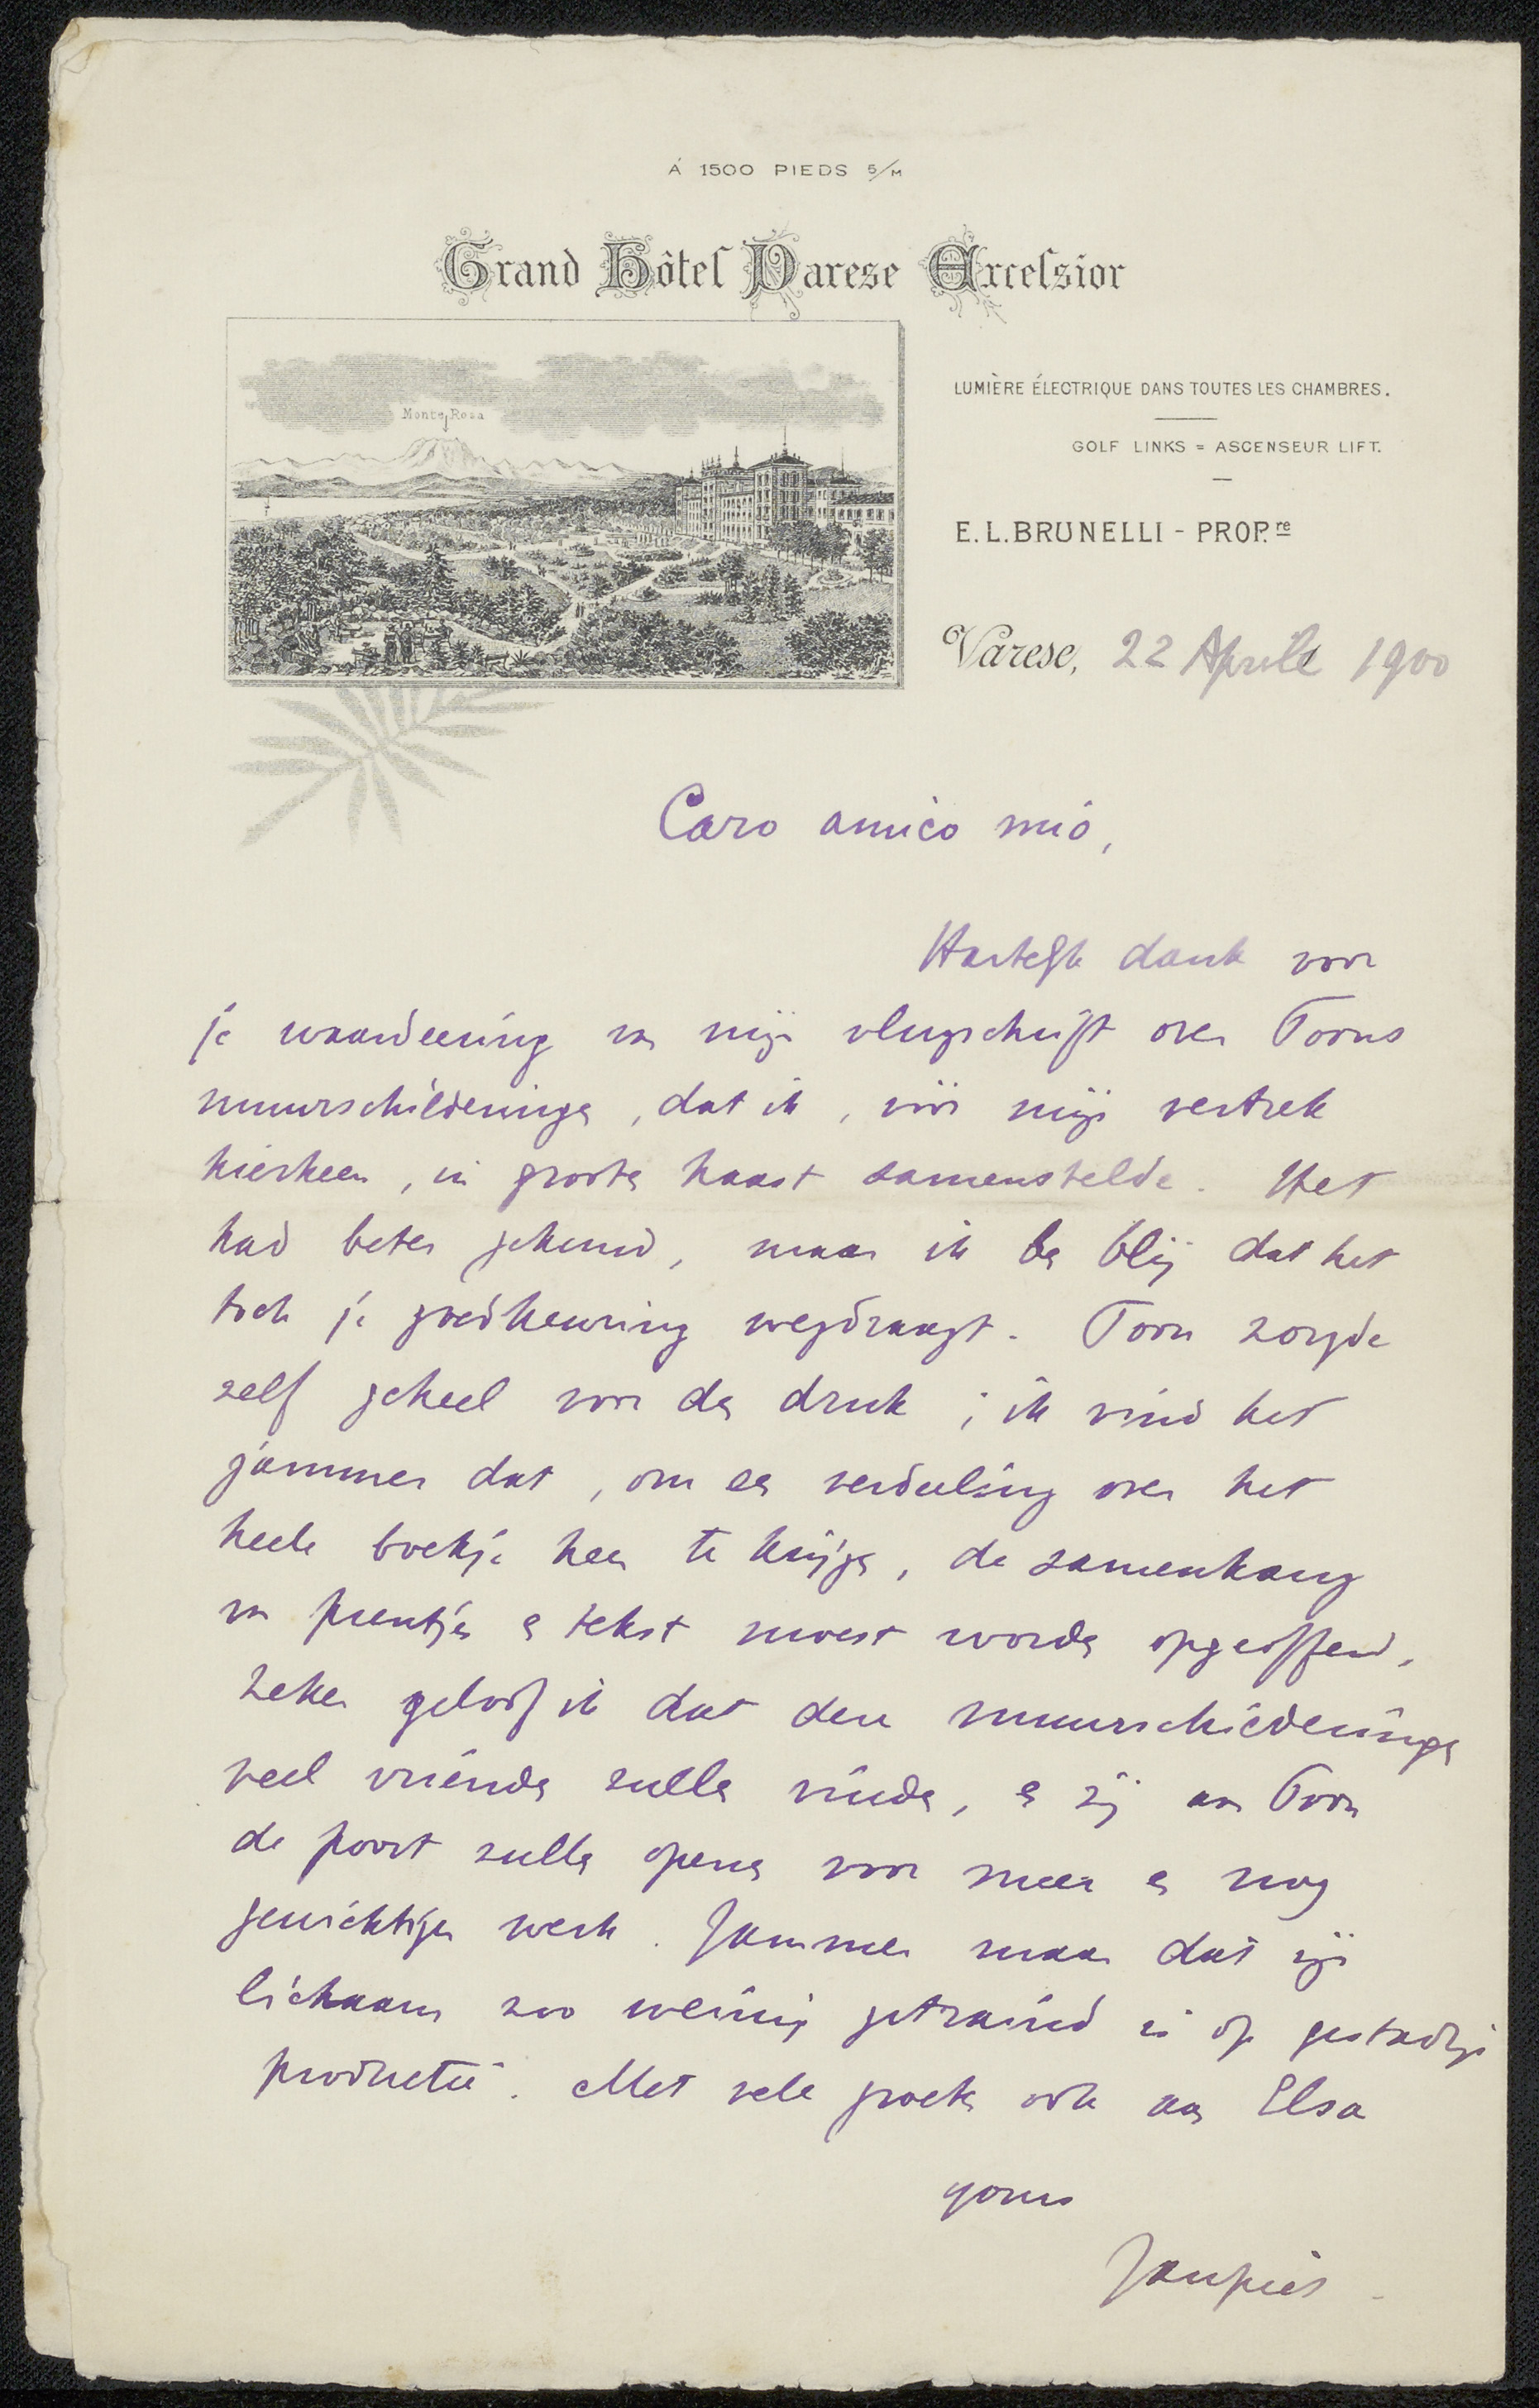 À 1500 PIEDS S/M
Grand Hôtel Varese Excelsior
Monte Rosa
LUMIÈRE ÉLECTRIQUE DANS TOUTES LES CHAMBRES.
GOLF LINKS = ASCENSEUR LIFT.
E. L. BRUNELLI - PROP.re
Varese, 22 Aprile 1900
Caro amico mio,
Hartelijk dank voor
je waardeering van mijn vlugschrift over Toons
muurschilderingen, dat ik, vóór mijn vertrek
hierheen, in groote haast samenstelde. Het
had beter gekund, maar ik ben blij dat het
toch je goedkeuring wegdraagt. Toon zorgde
zelf geheel voor den druk; ik vind het
jammer dat, om een verdeeling over het
heele boekje heen te krijgen, de samenhang
van prentjes en tekst moest worden opgeofferd.
Zeker geloof ik dat deze muurschilderingen
veel vrienden zullen vinden, en zij aan Toon
de poort zullen openen voor meer en nog
gewichtiger werk. Jammer maar dat zijn
lichaam zoo weinig getraind is op gestadige
productie. Met vele groeten ook aan Elsa
yours
Janpier